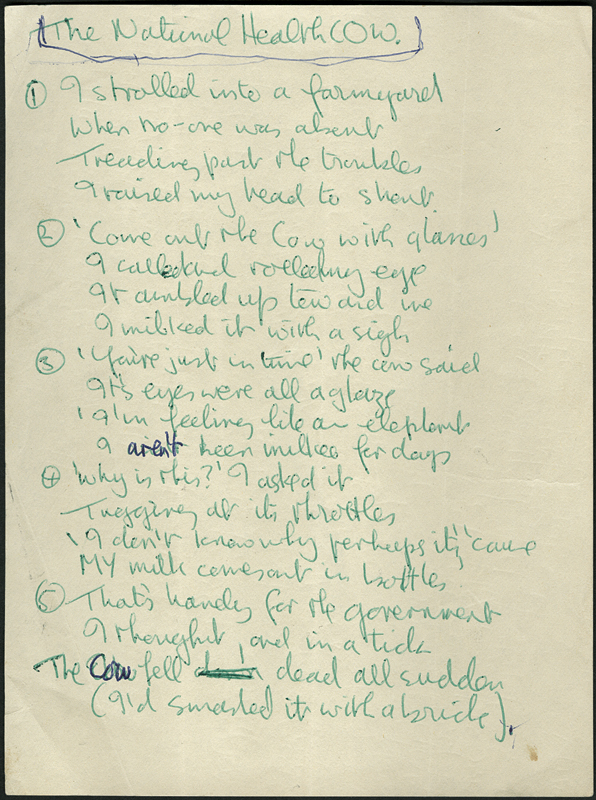 The National Health COW.
① I strolled into a farmeyard
When no-one was absent
Treading past the troubles
I raised my head to shout.
② 'Come out the Cow with glasses'
I called and rolled my eye
It ambled up toward me
I milked it with a sigh
③ 'You're just in time' the cow said
It's eyes were all aglaze
'I'm feeling like an elephant
I aren't been milked for days
④ 'Why is this?' I asked it
Tugging at its throttles
'I don't know why, perhaps it's 'cause
MY milk comes out in bottles
⑤ That's handy for the government
I thought, and in a tick
The Cow fell dead all sudden
(I'd smashed it with a brick).